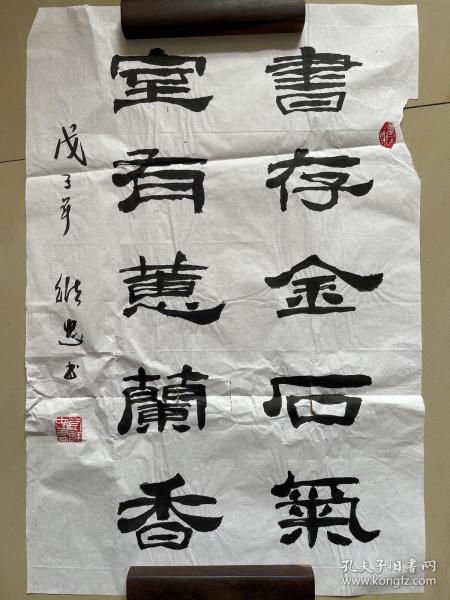 書存金石氣
室有蕙蘭香
戊子年
書
孔夫子旧书网
www.kongfz.com